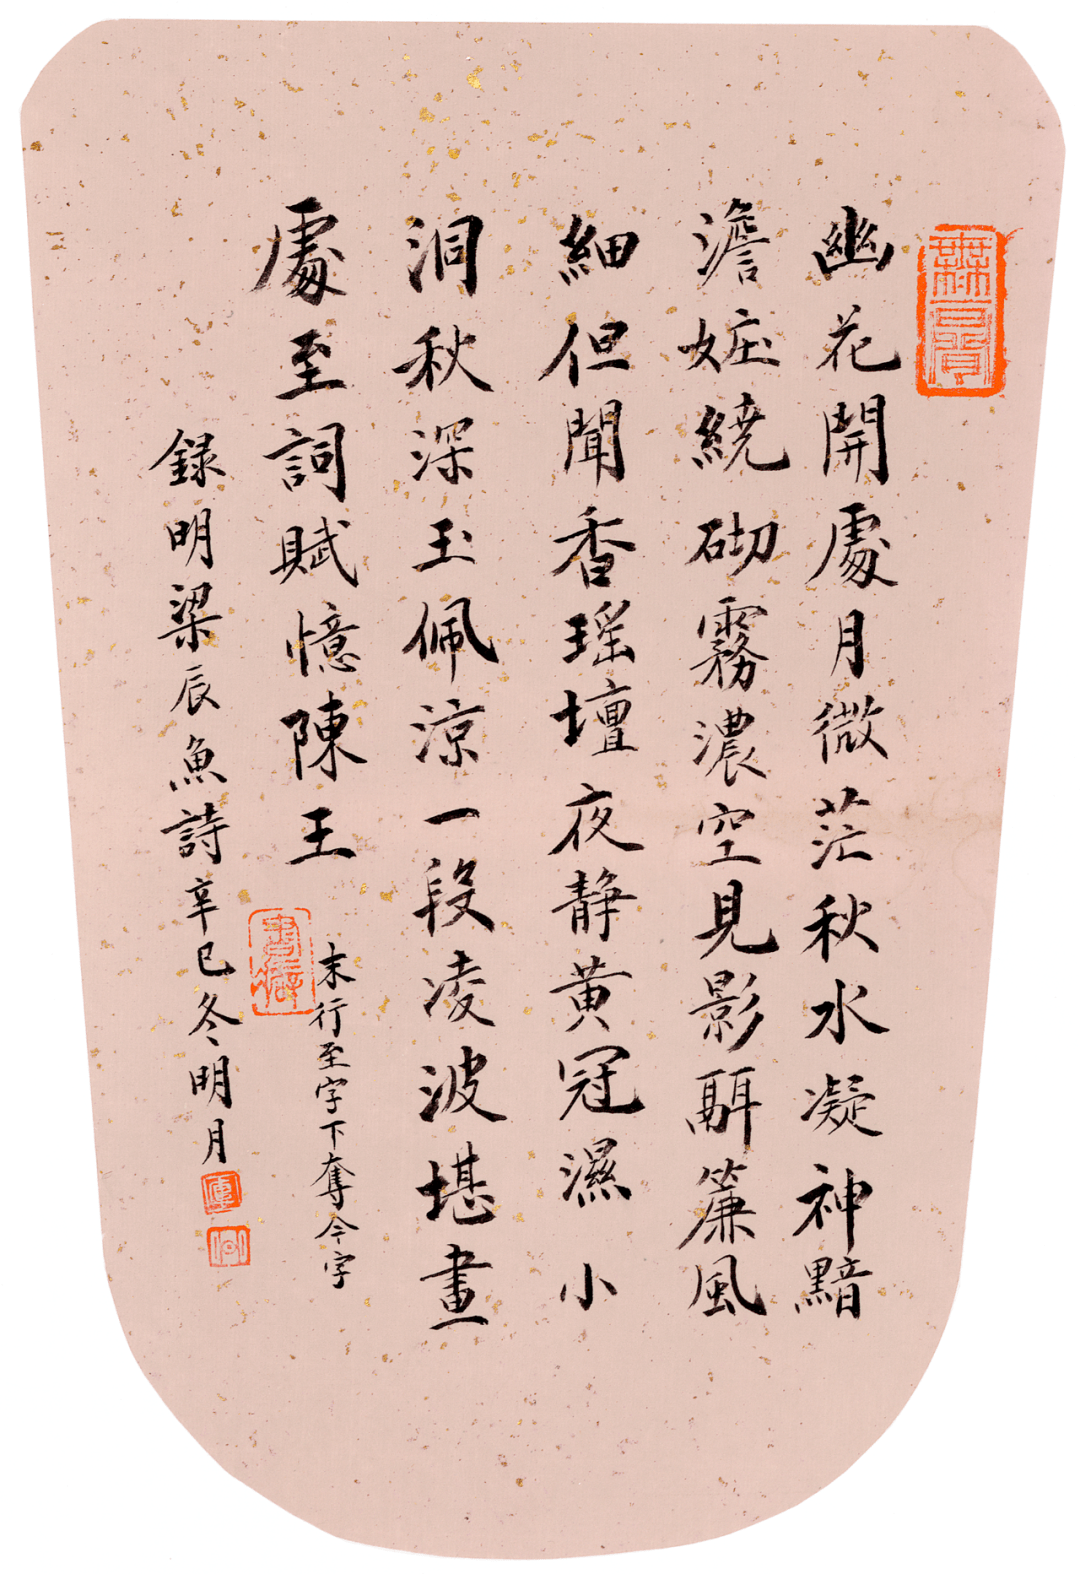 幽花開處月微茫秋水凝神黯
澹妝繞砌霧濃空見影隔簾風
細但聞香瑶壇夜静黄冠濕小
洞秋深玉佩涼一段凌波堪畫
處至詞賦憶陳王
末行至字下奪今字
録明梁辰魚詩辛巳冬明月